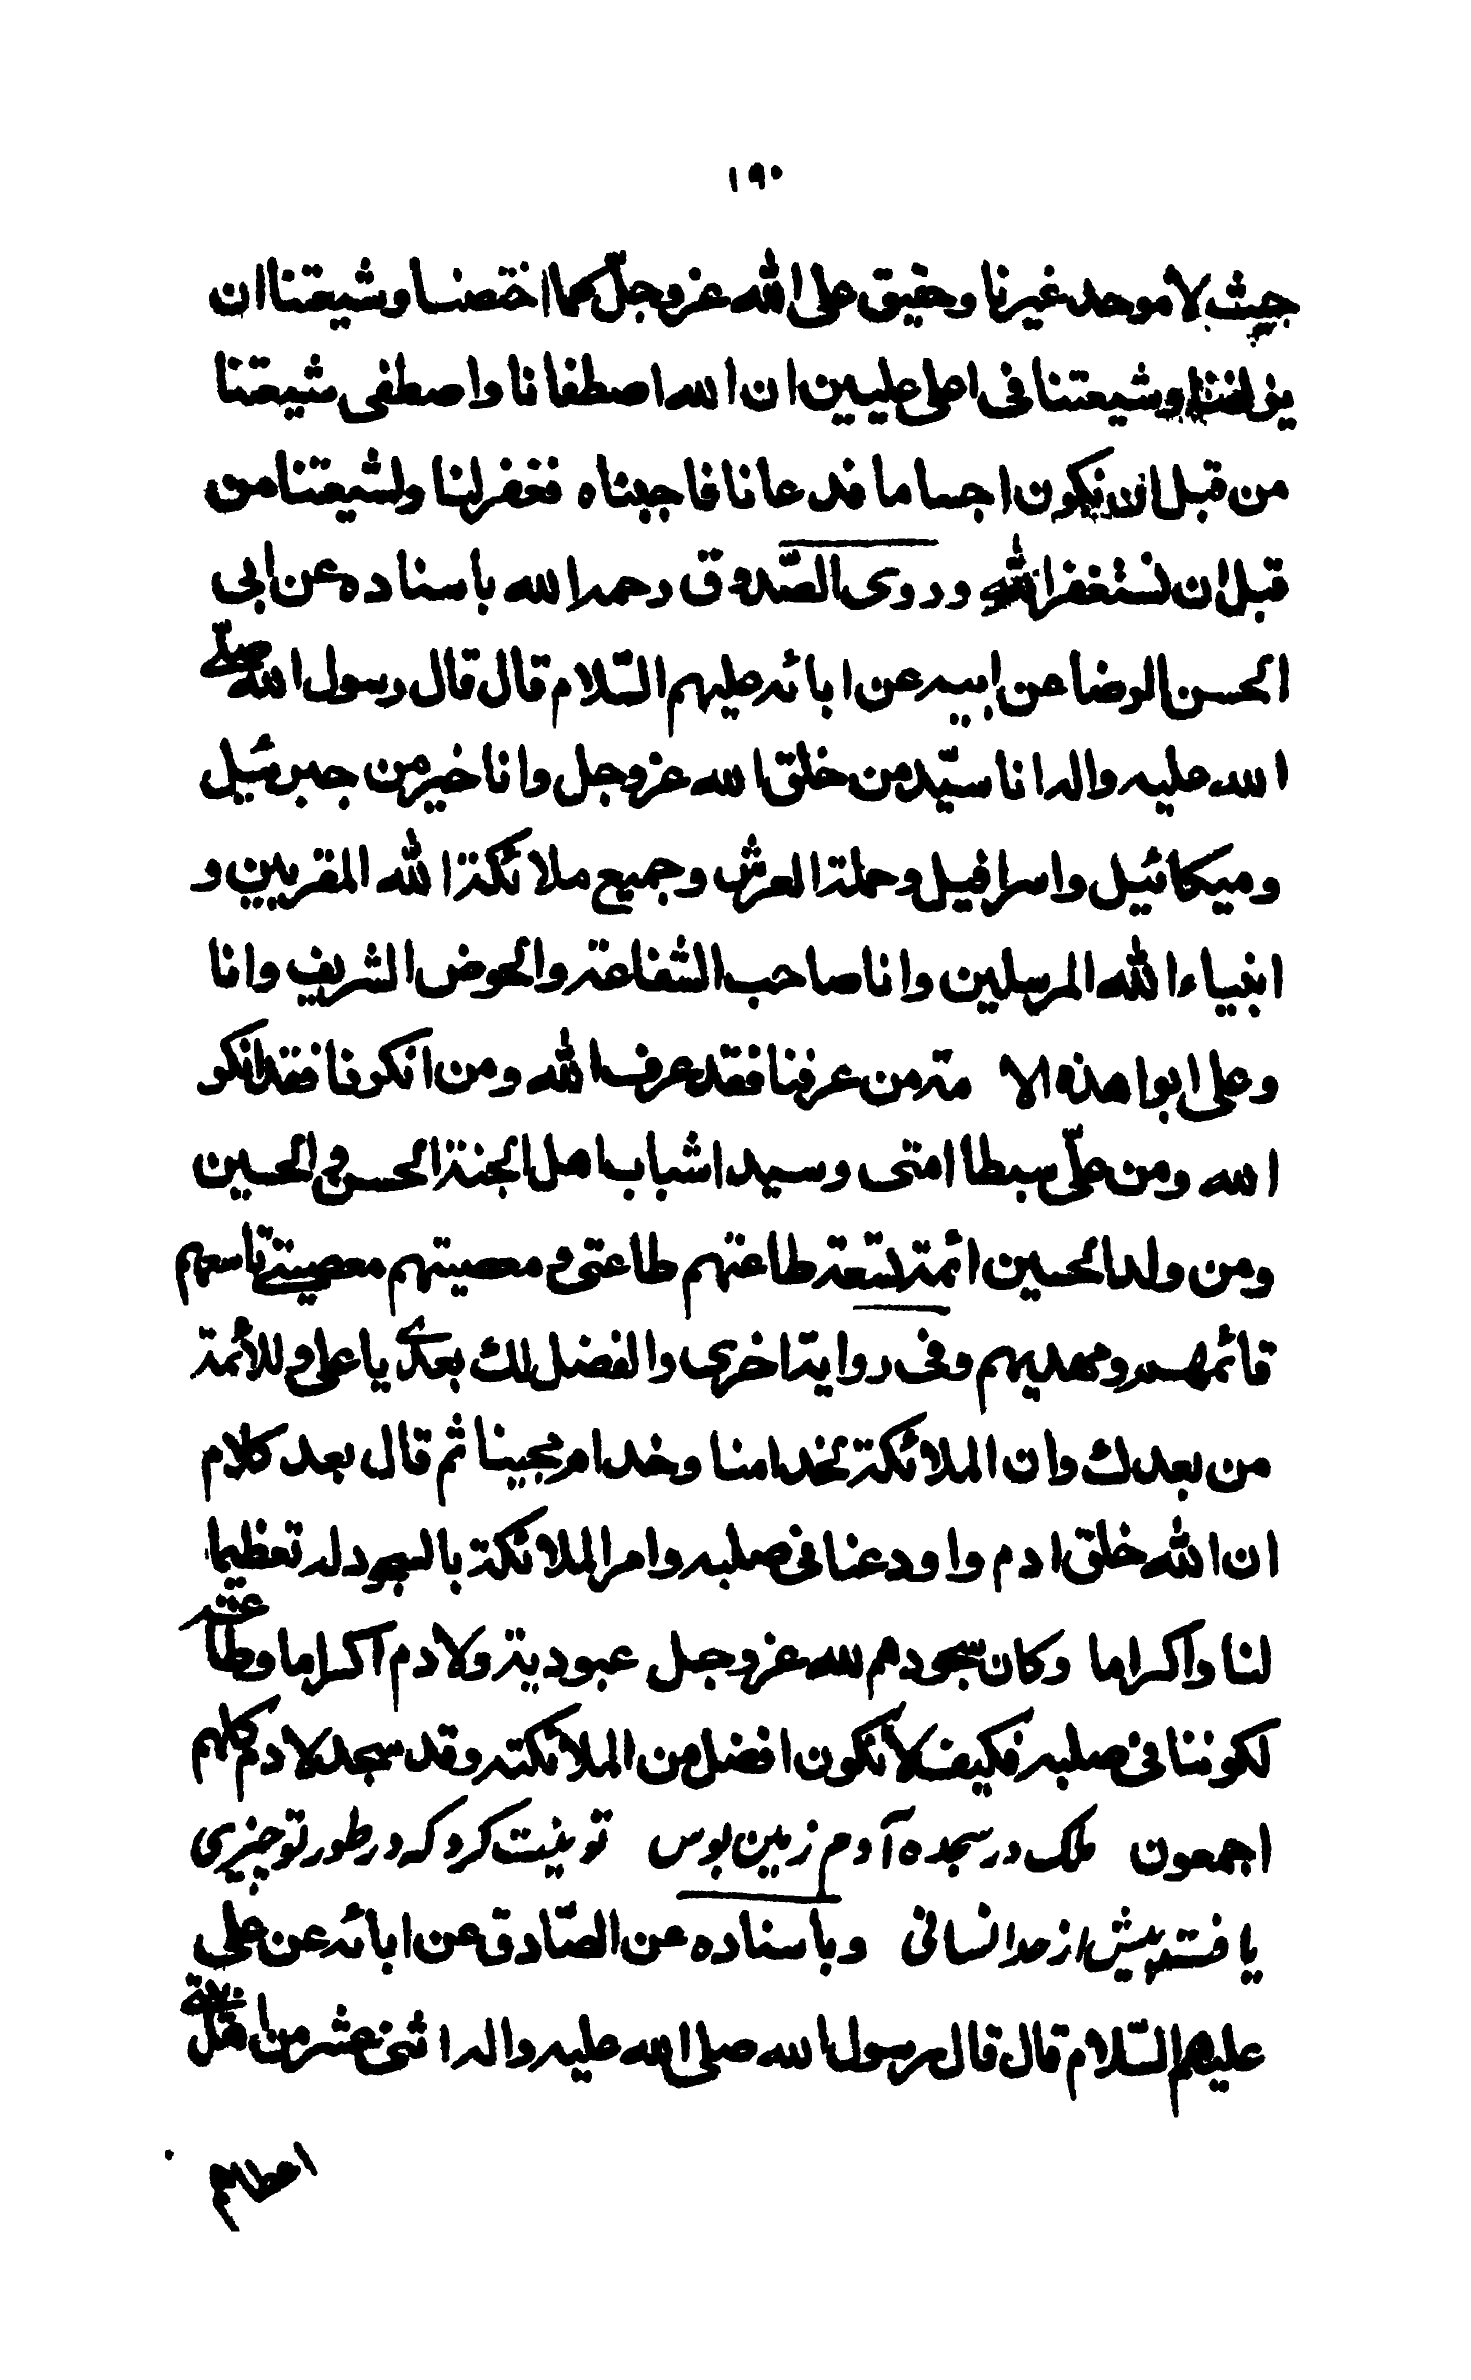 ١٩٠
حيث لا موحد غيرنا وحقيق على الله عز وجلّ كما اختصنا وشيعتنا ان
يزلفنا وشيعتنا فى اعلى عليين ان الله اصطفانا واصطفى شيعتنا
من قبل ان نكون اجساما فدعانا فاجبناه فغفر لنا ولشيعتنا من
قبل ان نستغفر الله وروى الصّدوق رحمه الله باسناده عن ابى
الحسن الرضا عن ابيه عن ابائه عليهم السّلام قال قال رسول الله صلّى
الله عليه واله انا سيّد من خلق الله عز وجل وانا خير من جبرئيل
وميكائيل واسرافيل وحملة العرش وجميع ملائكة الله المقربين و
انبياء الله المرسلين وانا صاحب الشفاعة والحوض الشريف وانا
وعلى ابوا هذه الامة من عرفنا فقد عرف الله ومن انكرنا فقد انكر
الله ومن علىّ سبطا امتى وسيدا شباب اهل الجنة الحسن و الحسين
ومن ولد الحسين ائمة تسعة طاعتهم طاعتى و معصيتهم معصيتى تاسعهم
قائمهم ومهديهم وفى رواية اخرى والفضل لك بعدى يا على و للأئمة
من بعدك وان الملائكة لخدامنا وخدام محبينا ثم قال بعد كلام
ان الله خلق ادم واودعنا فى صلبه وامر الملائكة بالسجود له تعظيما
لنا واكراما وكان سجودهم لله عز وجل عبودية ولادم اكراما وطاعته
لكوننا فى صلبه فكيف لا نكون افضل من الملائكته وقد سجد لادم كلهم
اجمعون ملك در سجده آدم زمين بوس تو نيت كرد كه در طور تو چيزى
يافته بيش از حد انسانى وباسناده عن الصّادق عن ابائه عن على
عليهم السّلام قال قال رسول الله صلى الله عليه واله اثنى عشر من اهل بيتى
اعطاهم